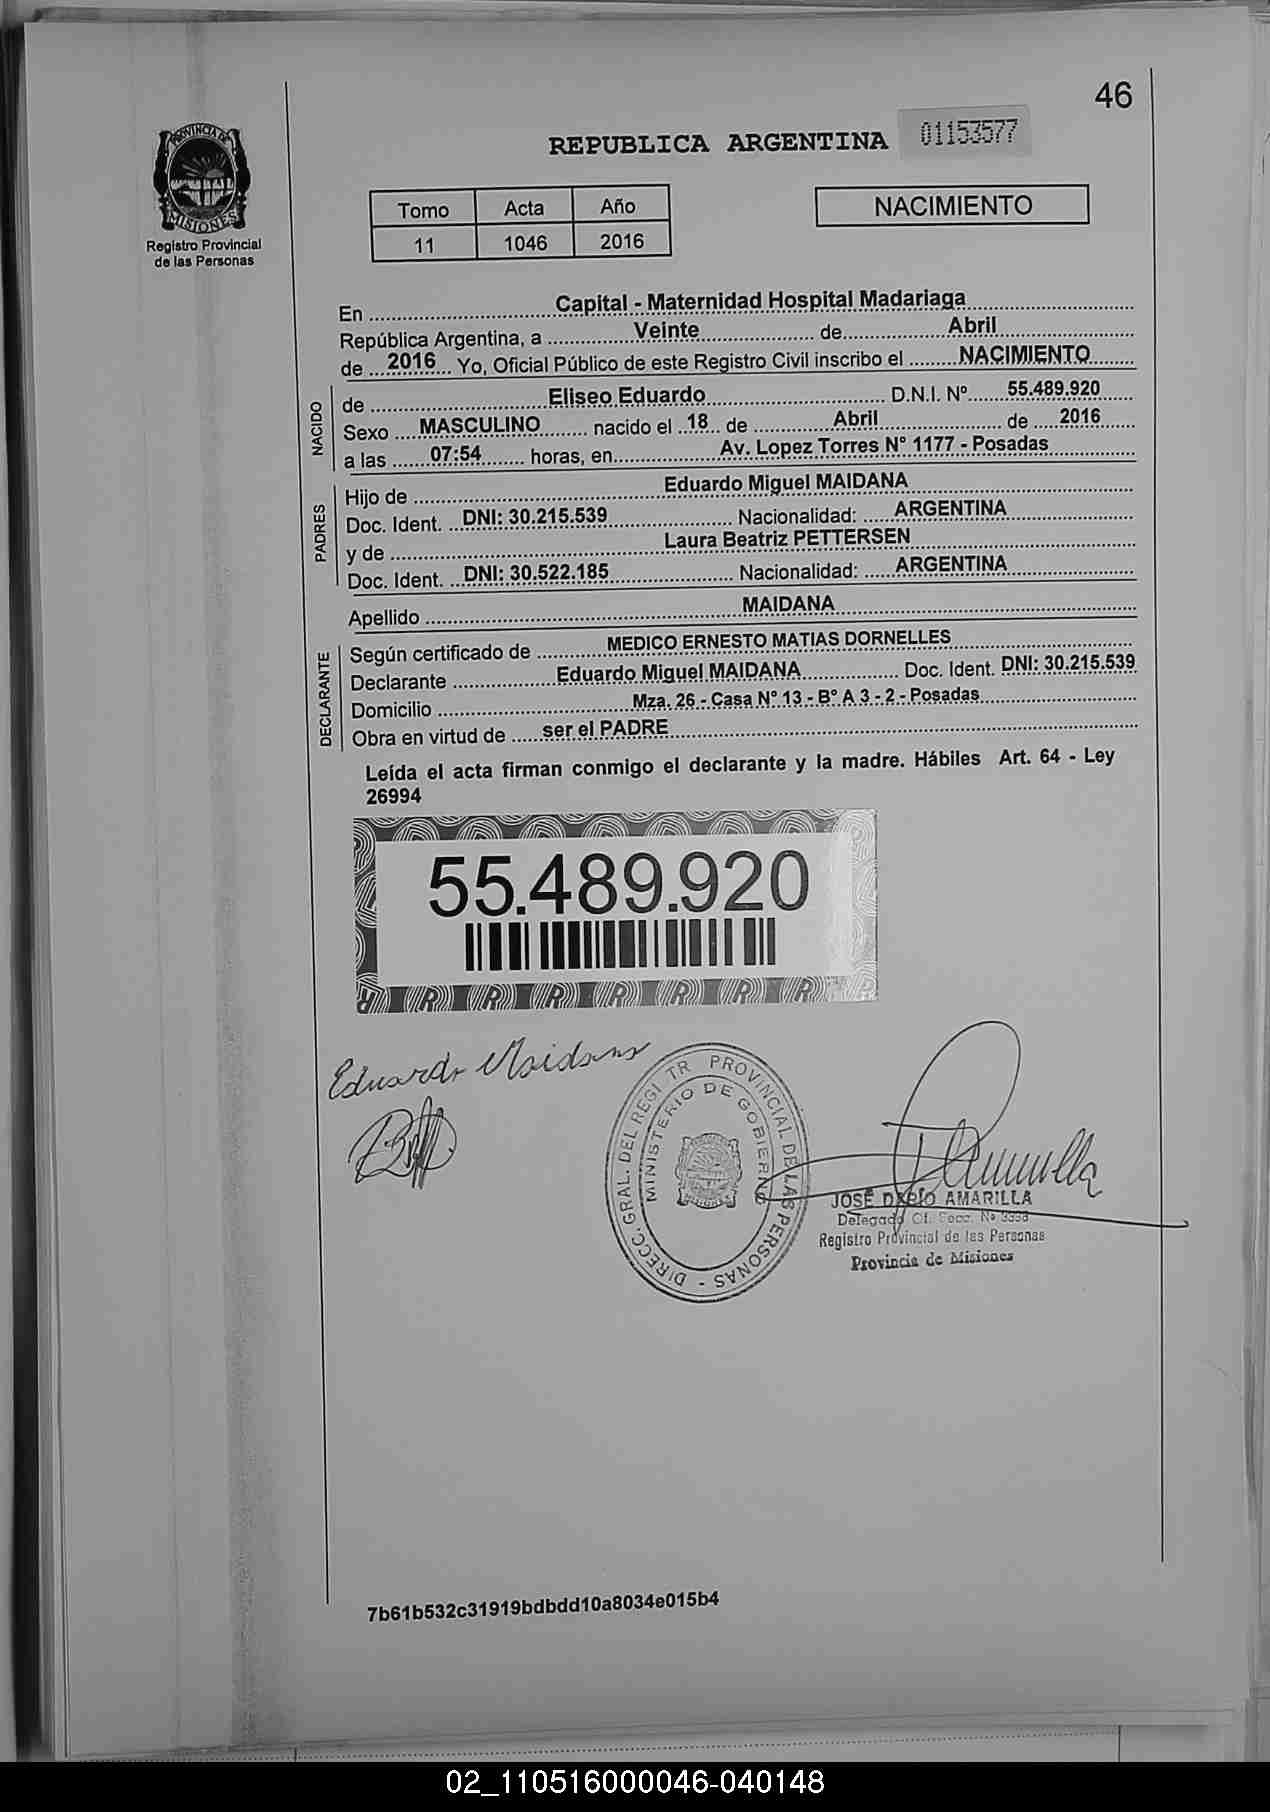 46
PROVINCIA DE
MISIONES
Registro Provincial
de las Personas
REPUBLICA ARGENTINA 01153577
Tomo Acta Año
11 1046 2016
NACIMIENTO
En Capital - Maternidad Hospital Madariaga
República Argentina, a Veinte de Abril
de 2016 Yo, Oficial Público de este Registro Civil inscribo el NACIMIENTO
NACIDO
de Eliseo Eduardo D.N.I. Nº 55.489.920
Sexo MASCULINO nacido el 18 de Abril de 2016
a las 07:54 horas, en Av. Lopez Torres N° 1177 - Posadas
PADRES
Hijo de Eduardo Miguel MAIDANA
Doc. Ident. DNI: 30.215.539 Nacionalidad: ARGENTINA
y de Laura Beatriz PETTERSEN
Doc. Ident. DNI: 30.522.185 Nacionalidad: ARGENTINA
Apellido MAIDANA
DECLARANTE
Según certificado de MEDICO ERNESTO MATIAS DORNELLES
Declarante Eduardo Miguel MAIDANA Doc. Ident. DNI: 30.215.539
Domicilio Mza. 26 - Casa N° 13 - B° A 3 - 2 - Posadas
Obra en virtud de ser el PADRE
Leída el acta firman conmigo el declarante y la madre. Hábiles Art. 64 - Ley
26994
55.489.920
Eduardo Maidana
DIRECC. GRAL. DEL REGISTR PROVINCIAL DE LAS PERSONAS -
MINISTERIO DE GOBIERNO
JOSÉ DARÍO AMARILLA
Delegado Of. Secc. Nº
Registro Provincial de las Personas
Provincia de Misiones
7b61b532c31919bdbdd10a8034e015b4
02_110516000046-040148